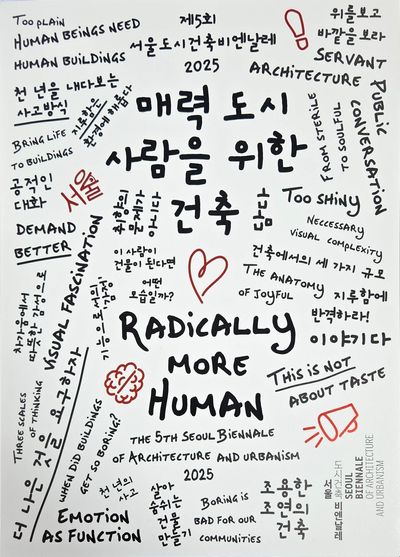 Too plain
HUMAN BEINGS NEED
HUMAN BUILDINGS
제5회
서울도시건축비엔날레
2025
위를보고
바깥을 보라
SERVANT
ARCHITECTURE
PUBLIC
CONVERSATION
FROM STERILE
TO SOULFUL
천 년을 내다보는
사고방식
지루함은
환경에 해롭다
BRING LIFE
TO BUILDINGS
공적인
대화
서울
DEMAND
BETTER
매력 도시
사람을 위한
건축
취향의
문제가
아니다
TOO SHINY
NECCESSARY
VISUAL COMPLEXITY
건축에서의 세 가지 규모
THE ANATOMY
OF JOYFUL
지루함에
반격하라!
이야기다
이 사람이
건물이 된다면
어떤
모습일까?
VISUAL FASCINATION
기능으로서의
감정
차가움에서
따뜻한 감성으로
RADICALLY
MORE
HUMAN
THIS IS NOT
ABOUT TASTE
THREE SCALES
OF THINKING
더 나은 것을 요구하자
WHEN DID BUILDINGS
GET SO BORING?
THE 5TH SEOUL BIENNALE
OF ARCHITECTURE AND URBANISM
2025
천 년의
사고
살아
숨쉬는
건물
만들기
BORING IS
BAD FOR OUR
COMMUNITIES
조용한
조연의
건축
EMOTION
AS FUNCTION
서울
비엔날레
SEOUL
BIENNALE
OF ARCHITECTURE
AND URBANISM